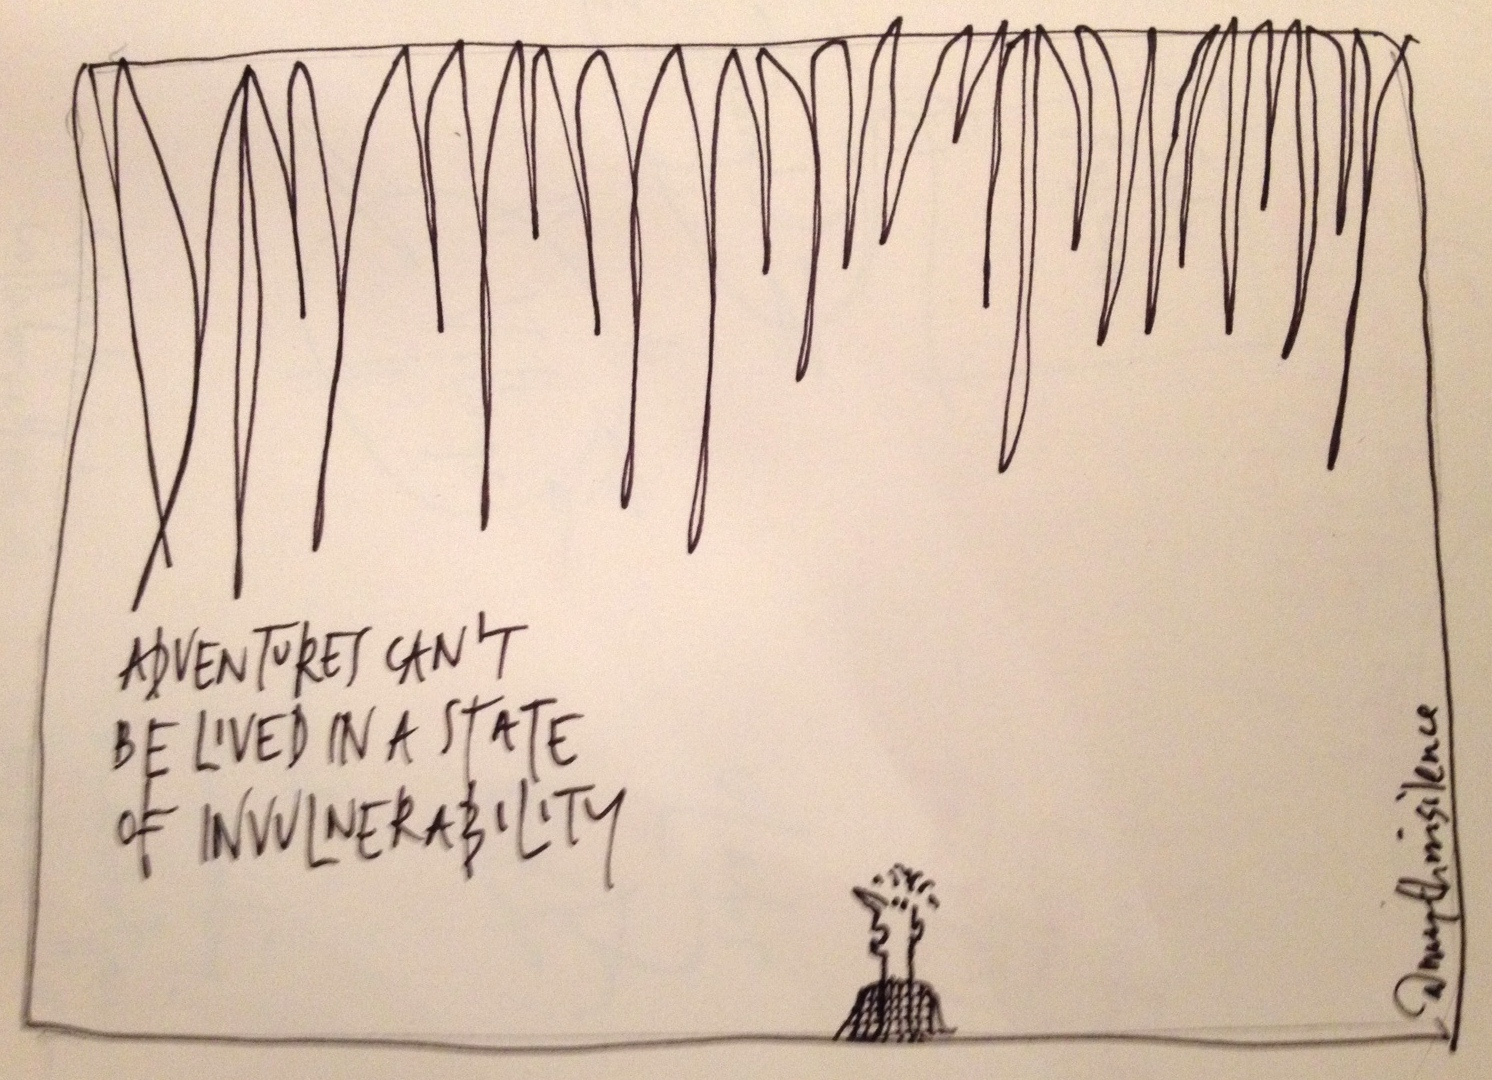 ADVENTURES CAN'T
BE LIVED IN A STATE
OF INVULNERABILITY
@mythinsilence